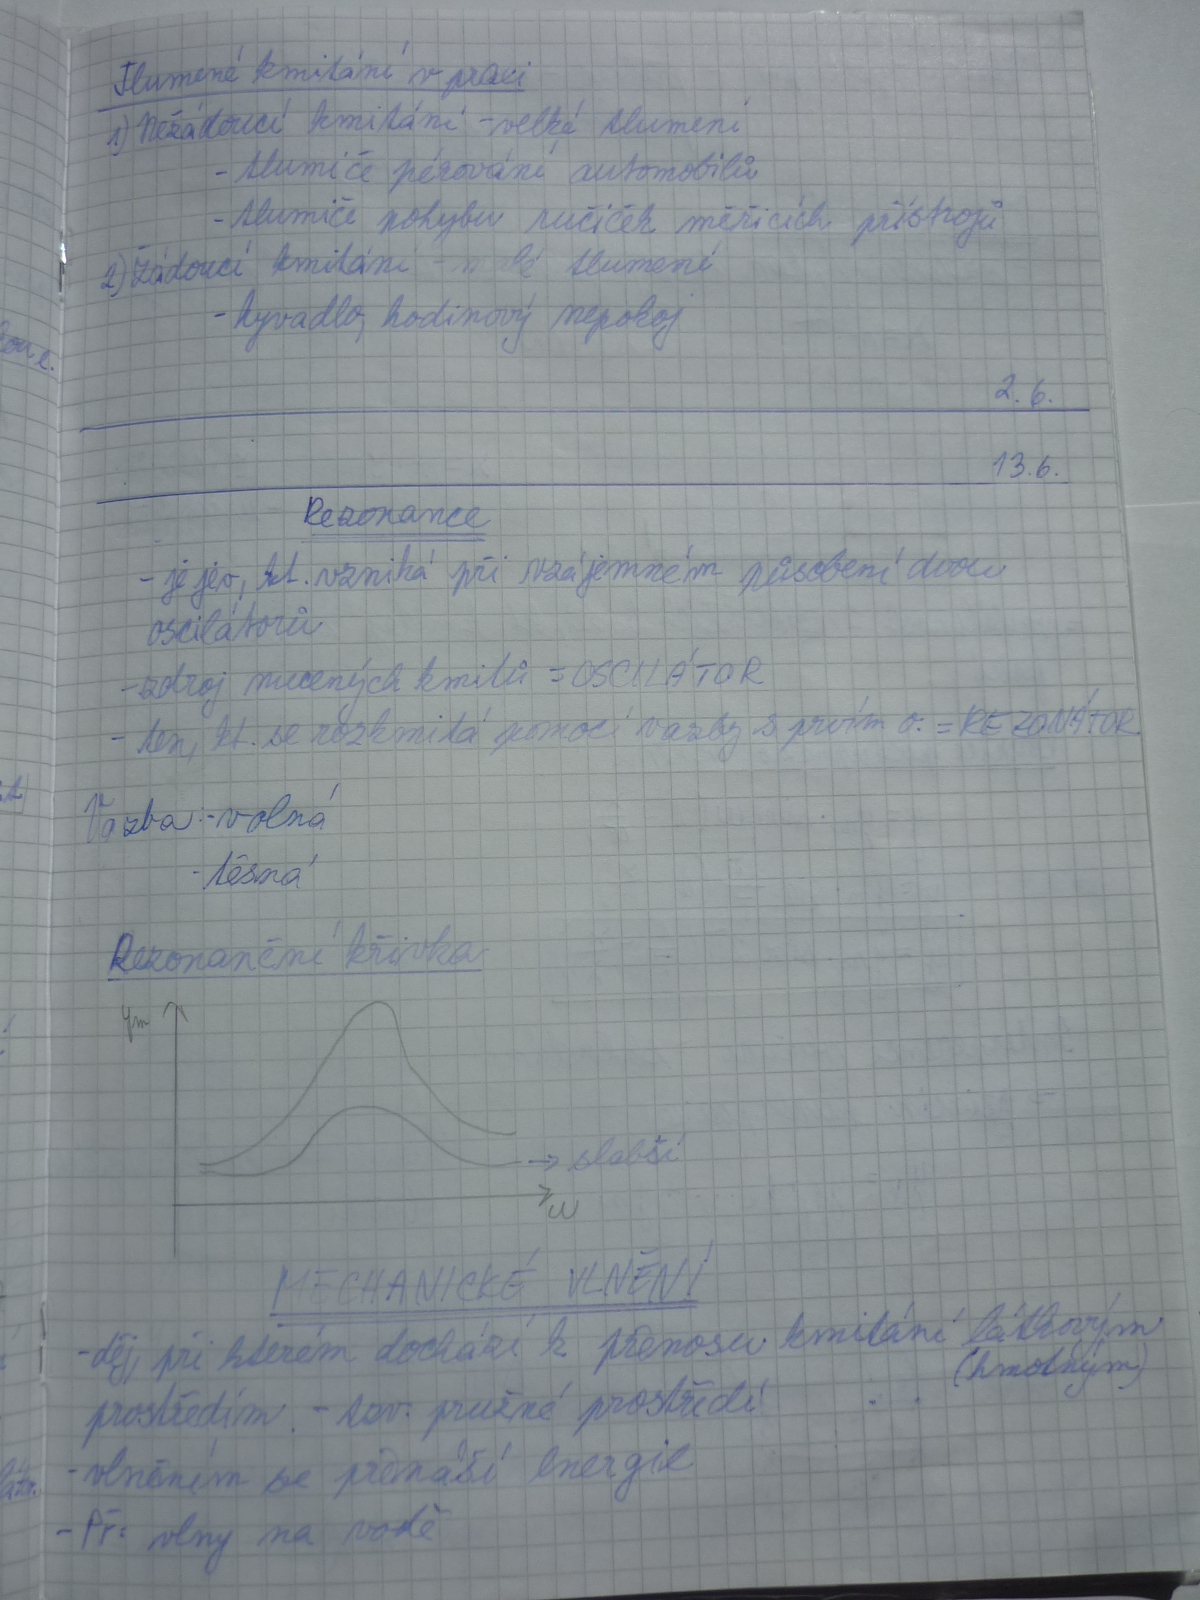 Tlumené kmitání v praxi
1) Nežádoucí kmitání - velké tlumení
- tlumiče pérování automobilů
- tlumiče pohybu ručiček měřicích přístrojů
2) Žádoucí kmitání - tlumené
- kyvadlo, hodinový nepokoj
2.6.
13.6.
Rezonance
- je jev, kt. vzniká při vzájemném působení dvou
oscilátorů
- zdroj nucených kmitů = OSCILÁTOR
- ten, kt. se rozkmitá pomocí vazby s prvím o. = REZONÁTOR
Vazba: - volná
- těsná
Rezonanční křivka
ym
→ slabší
ω
MECHANICKÉ VLNĚNÍ
- děj, při kterém dochází k přenosu kmitání látkovým
(hmotným)
prostředím. - tzv. pružné prostředí
- vlněním se přenáší energie
- Př: vlny na vodě